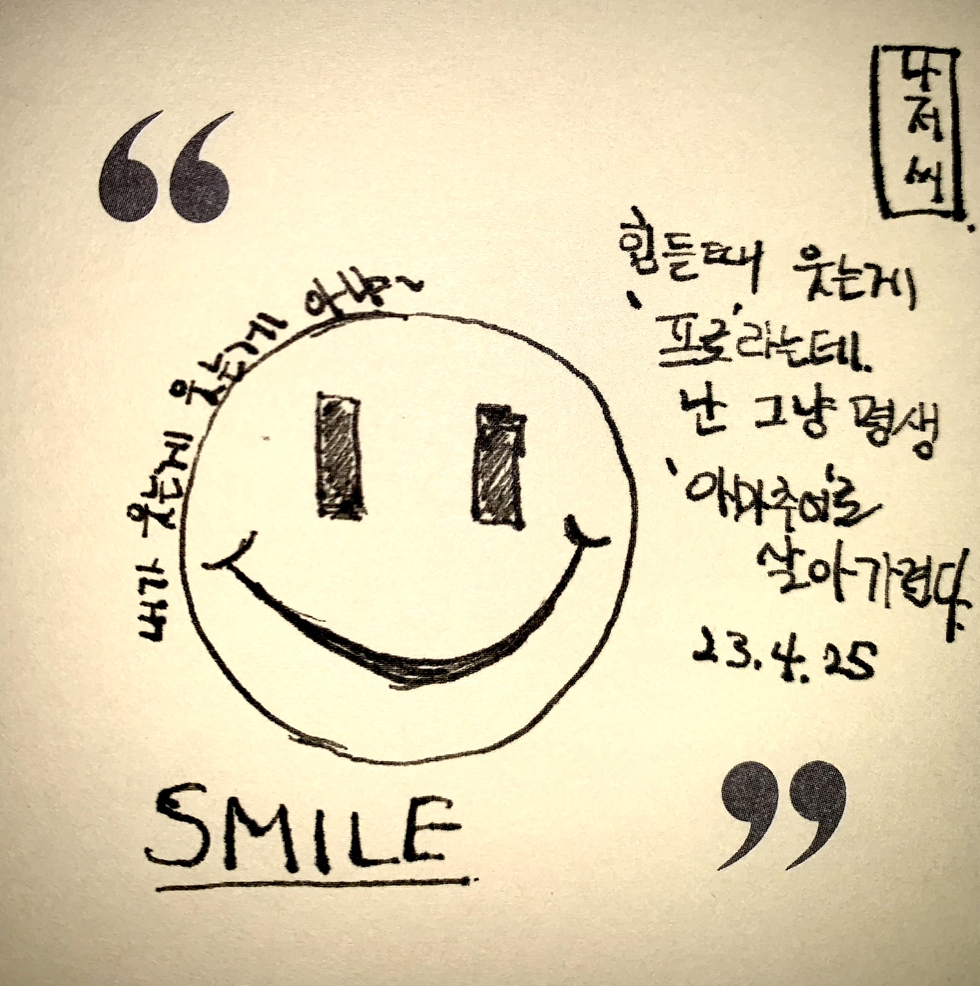 나저씨
힘들때 웃는게
'프로'라는데.
난 그냥 평생
'아마추어'로
살아가련다.
23.4.25
내가 웃는게 웃는게 아냐~
SMILE